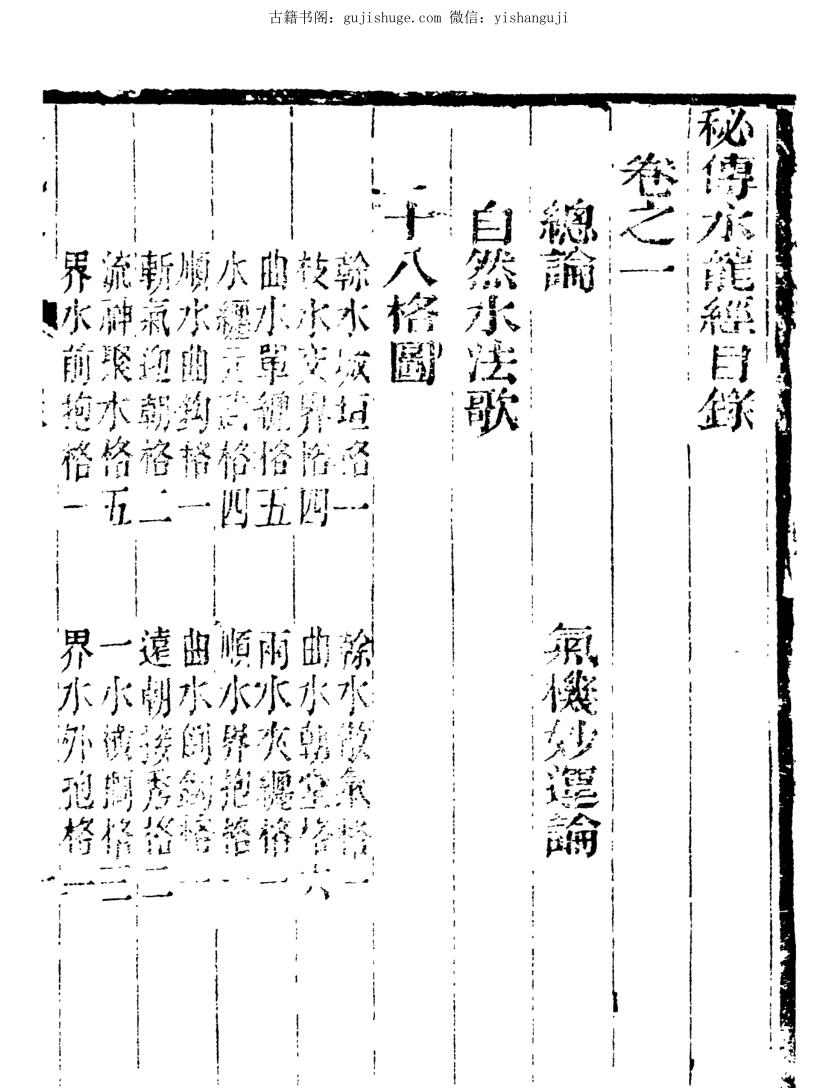 古籍书阁：gujishuge.com 微信：yishanguji
秘傳水龍經目錄
卷之一
總論 氣機妙運論
自然水法歌
二十八格圖
幹水城垣格一 幹水散氣格一
枝水交界格四 曲水朝堂格六
曲水單纏格五 兩水夾纏格一
水纏玄武格四 順水界抱格一
順水曲鈎格一 曲水倒鈎格一
斬氣迎朝格二 遠朝接秀格二
流神聚水格五 一水
界水前抱格一 界水外抱格二